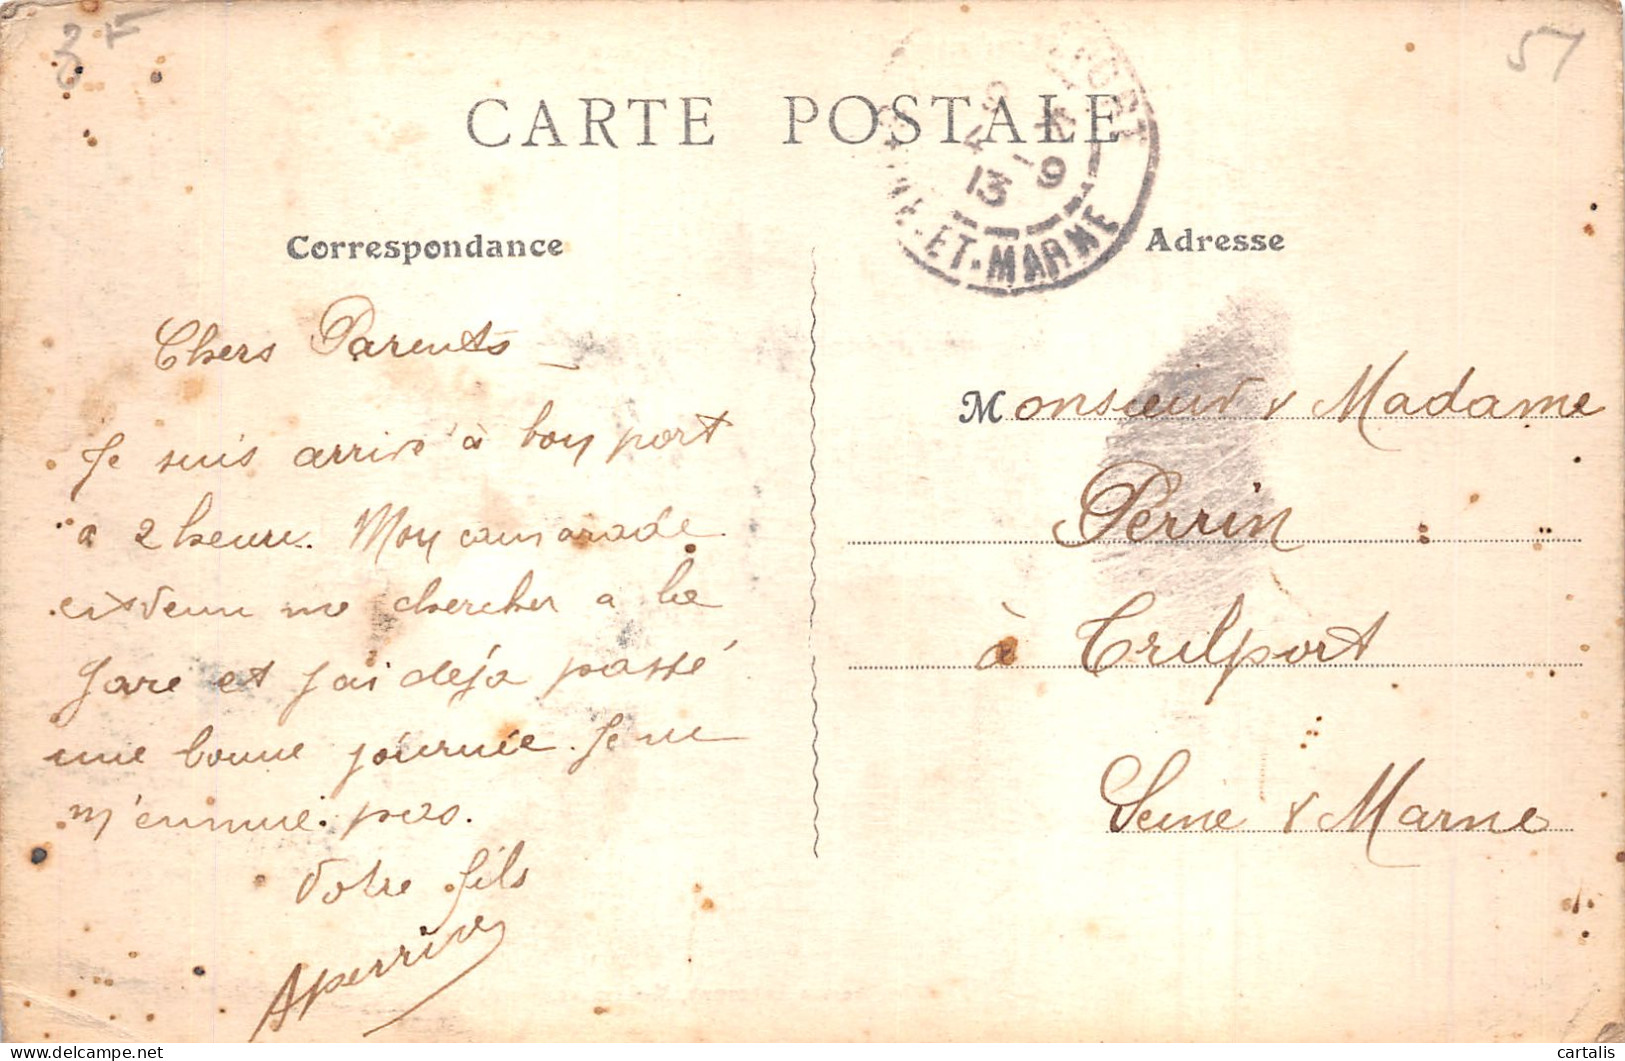 3F
51
CARTE POSTALE
Correspondance
Adresse
Chers Parents
Je suis arrivé à bon port
a 2 heure. Mon camarade
est venu me chercher a la
gare et j'ai déja passé
une bonne journée. Je ne
m'ennuie pas.
Votre fils
APerrin
13 -9
ET-MARNE
Monsieur & Madame
Perrin
à Trilport
Seine & Marne
delcampe.net
cartalis